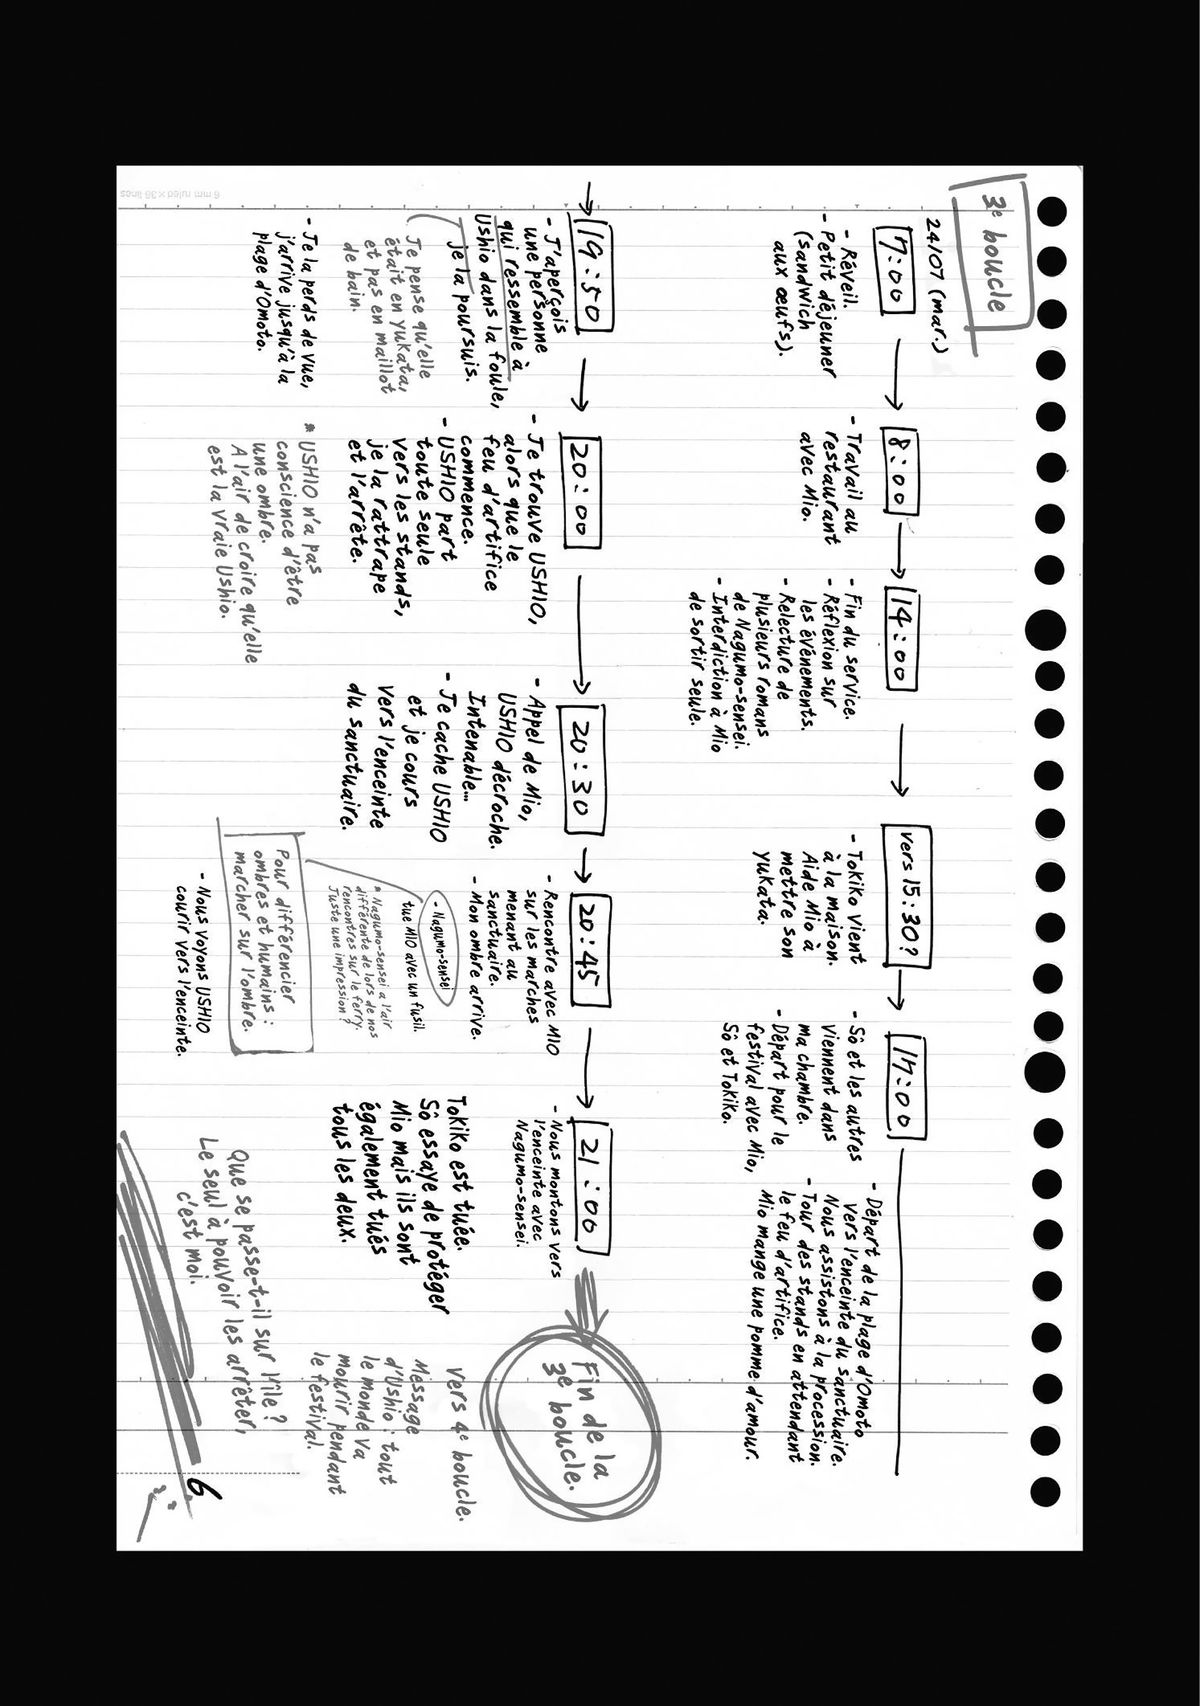 3e boucle
24/07 (mar.)
7:00
- Réveil.
- Petit déjeuner
(sandwich
aux œufs).
8:00
- Travail au
restaurant
avec Mio.
14:00
- Fin du service.
- Réflexion sur
les événements.
- Relecture de
plusieurs romans
de Nagumo-sensei.
- Interdiction à Mio
de sortir seule.
vers 15:30?
- Tokiko vient
à la maison.
Aide Mio à
mettre son
yukata.
17:00
- Sô et les autres
viennent dans
ma chambre.
- Départ pour le
festival avec Mio,
Sô et Tokiko.
- Départ de la plage d'Omoto
vers l'enceinte du sanctuaire.
Nous assistons à la procession.
- Tour des stands en attendant
le feu d'artifice.
Mio mange une pomme d'amour.
19:50
- J'aperçois
une personne
qui ressemble à
Ushio dans la foule,
je la poursuis.
Je pense qu'elle
était en yukata,
et pas en maillot
de bain.
- Je la perds de vue,
j'arrive jusqu'à la
plage d'Omoto.
20:00
- Je trouve USHIO,
alors que le
feu d'artifice
commence.
- USHIO part
toute seule
vers les stands,
je la rattrape
et l'arrête.
* USHIO n'a pas
conscience d'être
une ombre.
A l'air de croire qu'elle
est la vraie Ushio.
20:30
- Appel de Mio,
USHIO décroche.
Intenable...
- Je cache USHIO
et je cours
vers l'enceinte
du sanctuaire.
20:45
- Rencontre avec MIO
sur les marches
menant au
sanctuaire.
- Mon ombre arrive.
- Nagumo-sensei
tue MIO avec un fusil.
* Nagumo-sensei a l'air
différente de lors de nos
rencontres sur le ferry.
Juste une impression?
Pour différencier
ombres et humains :
marcher sur l'ombre.
- Nous voyons USHIO
courir vers l'enceinte.
21:00
- Nous montons vers
l'enceinte avec
Nagumo-sensei.
Tokiko est tuée.
Sô essaye de protéger
Mio mais ils sont
également tués
tous les deux.
Fin de la
3e boucle.
Vers 4e boucle.
Message
d'Ushio : tout
le monde va
mourir pendant
le festival.
Que se passe-t-il sur l'île ?
Le seul à pouvoir les arrêter,
c'est moi.
6
6 mm ruled×36 lines